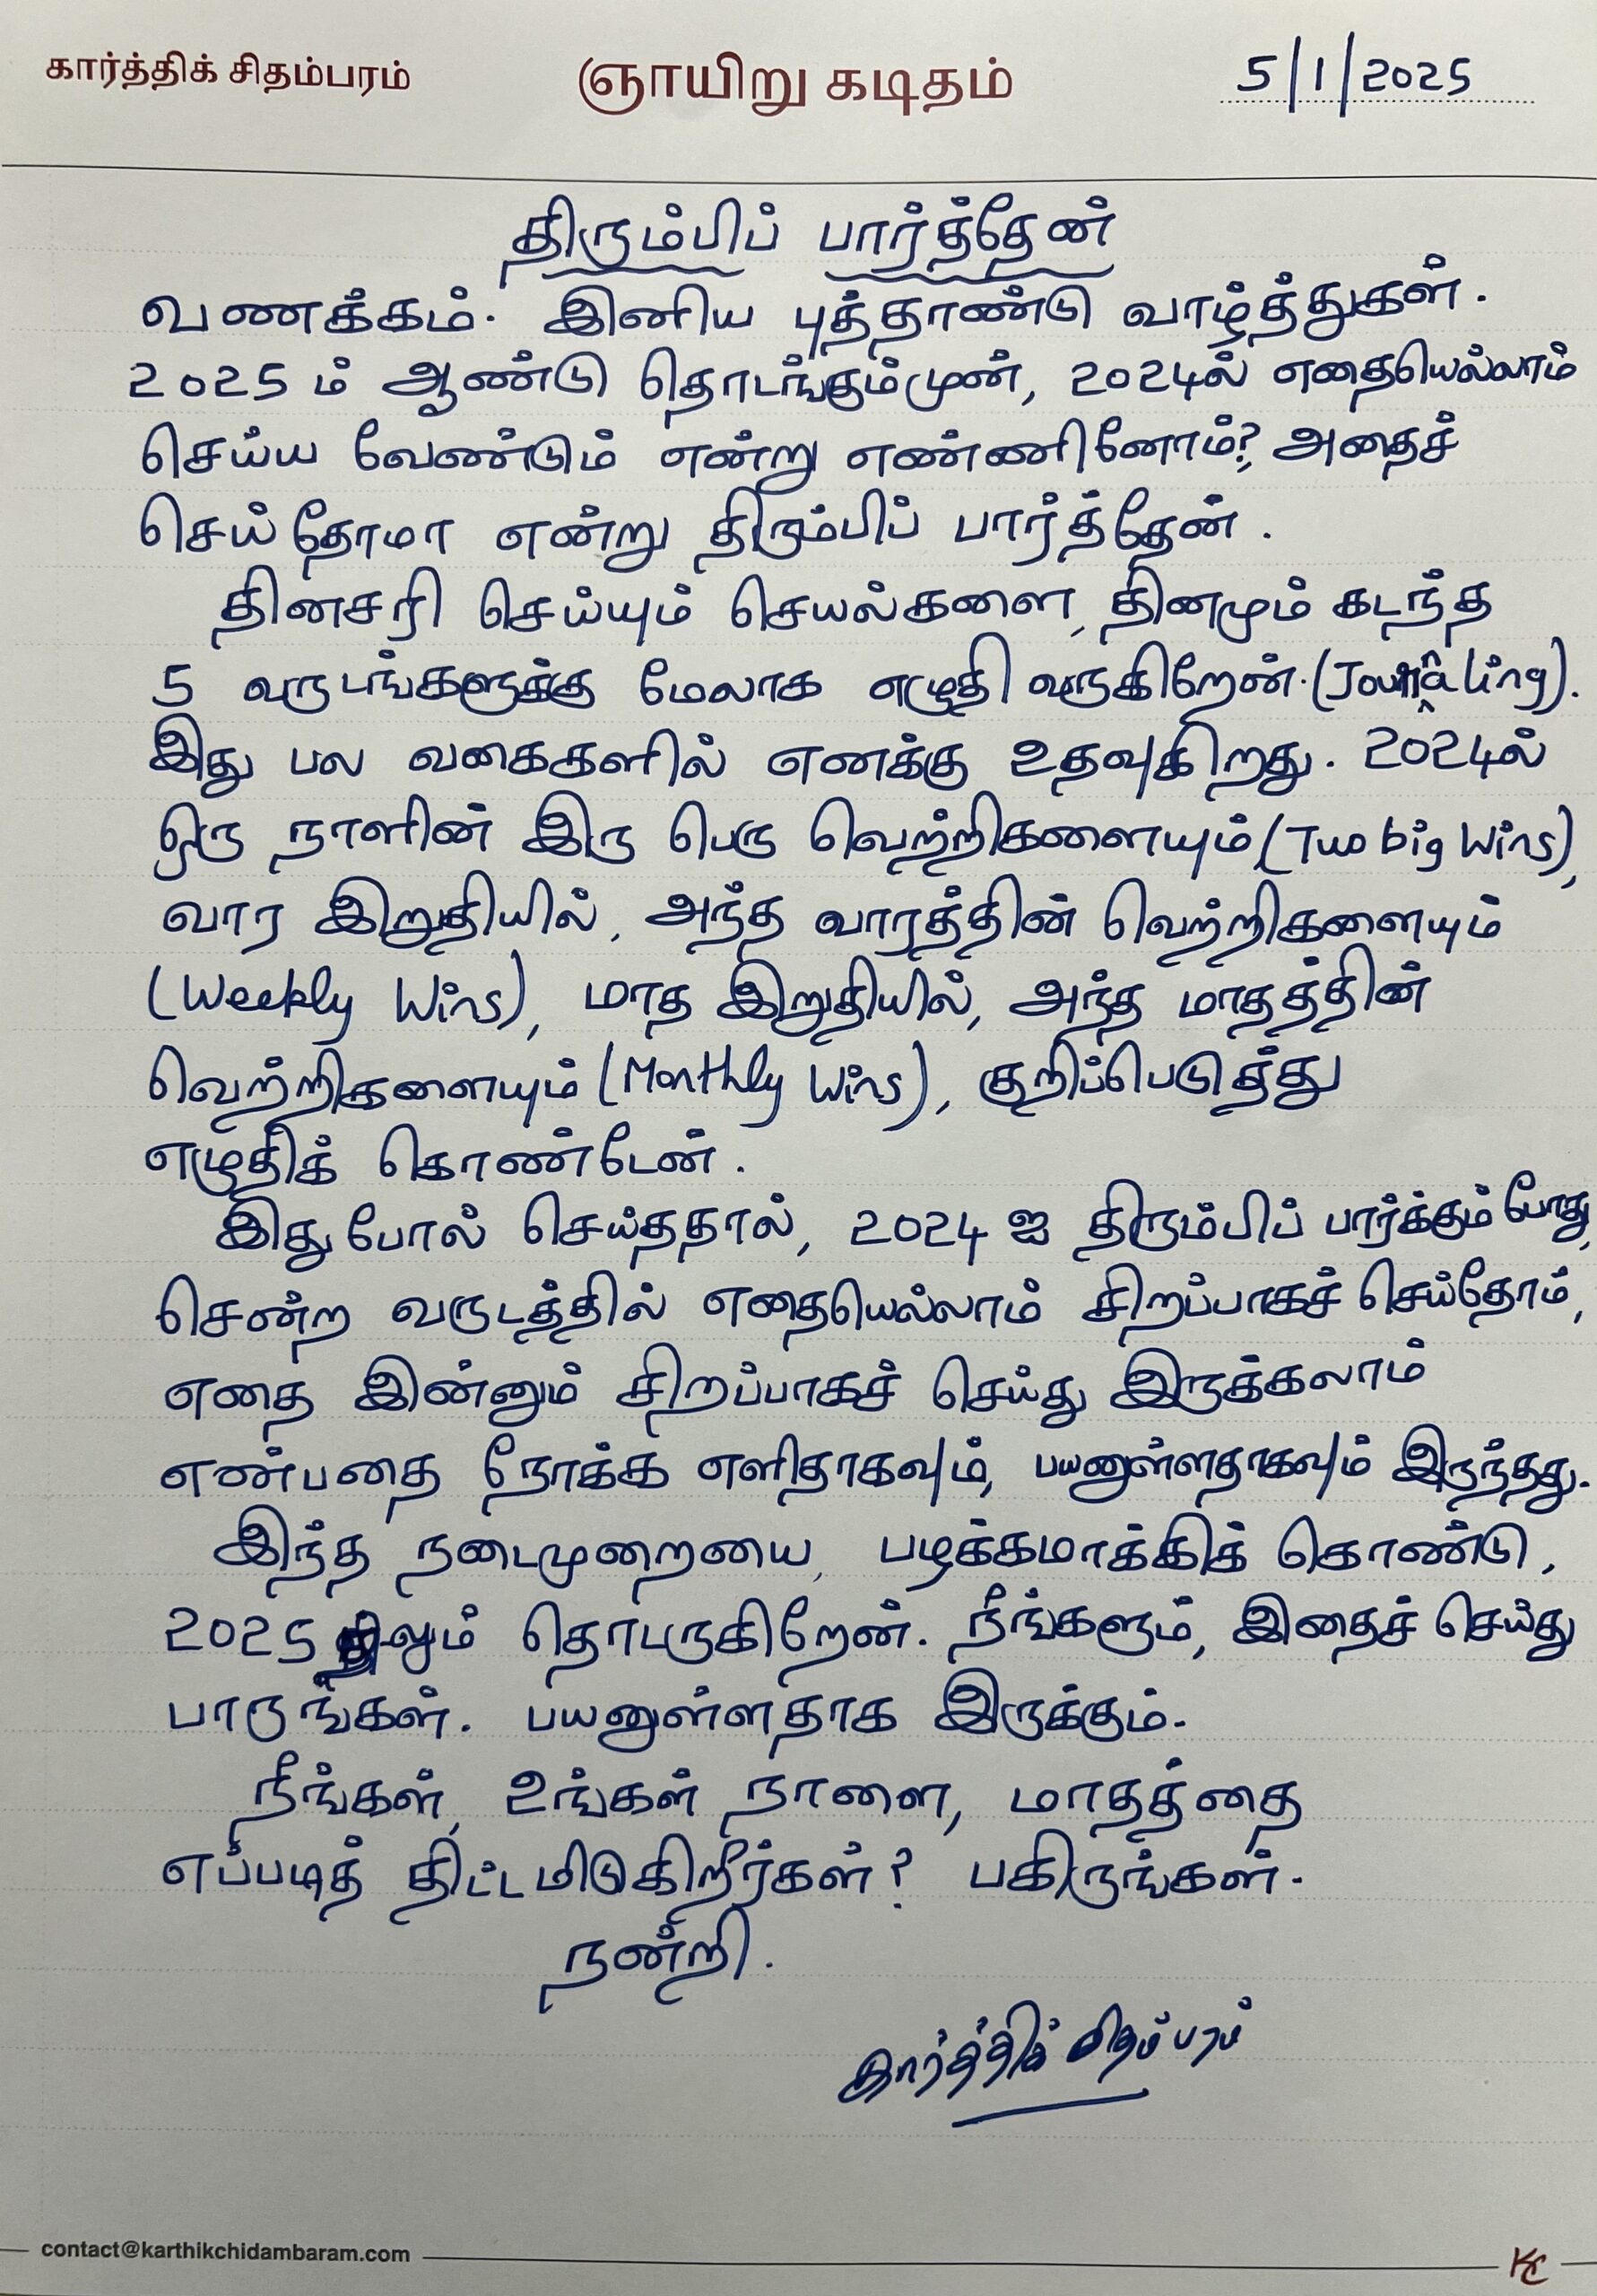 கார்த்திக் சிதம்பரம் ஞாயிறு கடிதம் 5/1/2025
திரும்பிப் பார்த்தேன்
வணக்கம். இனிய புத்தாண்டு வாழ்த்துகள்.
2025 ம் ஆண்டு தொடங்கும்முன், 2024ல் எதையெல்லாம்
செய்ய வேண்டும் என்று எண்ணினோம்?, அதைச்
செய்தோமா என்று திரும்பிப் பார்த்தேன்.
தினசரி செய்யும் செயல்களை, தினமும் கடந்த
5 வருடங்களுக்கு மேலாக எழுதி வருகிறேன். (Journaling).
இது பல வகைகளில் எனக்கு உதவுகிறது. 2024ல்
ஒரு நாளின் இரு பெரு வெற்றிகளையும் (Two big Wins),
வார இறுதியில், அந்த வாரத்தின் வெற்றிகளையும்
(Weekly Wins), மாத இறுதியில், அந்த மாதத்தின்
வெற்றிகளையும் (Monthly Wins), குறிப்பெடுத்து
எழுதிக் கொண்டேன்.
இதுபோல் செய்ததால், 2024 ஐ திரும்பிப் பார்க்கும்போது,
சென்ற வருடத்தில் எதையெல்லாம் சிறப்பாகச் செய்தோம்,
எதை இன்னும் சிறப்பாகச் செய்து இருக்கலாம்
என்பதை நோக்க எளிதாகவும், பயனுள்ளதாகவும் இருந்தது.
இந்த நடைமுறையை, பழக்கமாக்கிக் கொண்டு,
2025 திலும் தொடருகிறேன். நீங்களும், இதைச் செய்து
பாருங்கள். பயனுள்ளதாக இருக்கும்.
நீங்கள், உங்கள் நாளை, மாதத்தை
எப்படித் திட்டமிடுகிறீர்கள்? பகிருங்கள்.
நன்றி.
கார்த்திக் சிதம்பரம்
contact@karthikchidambaram.com KC